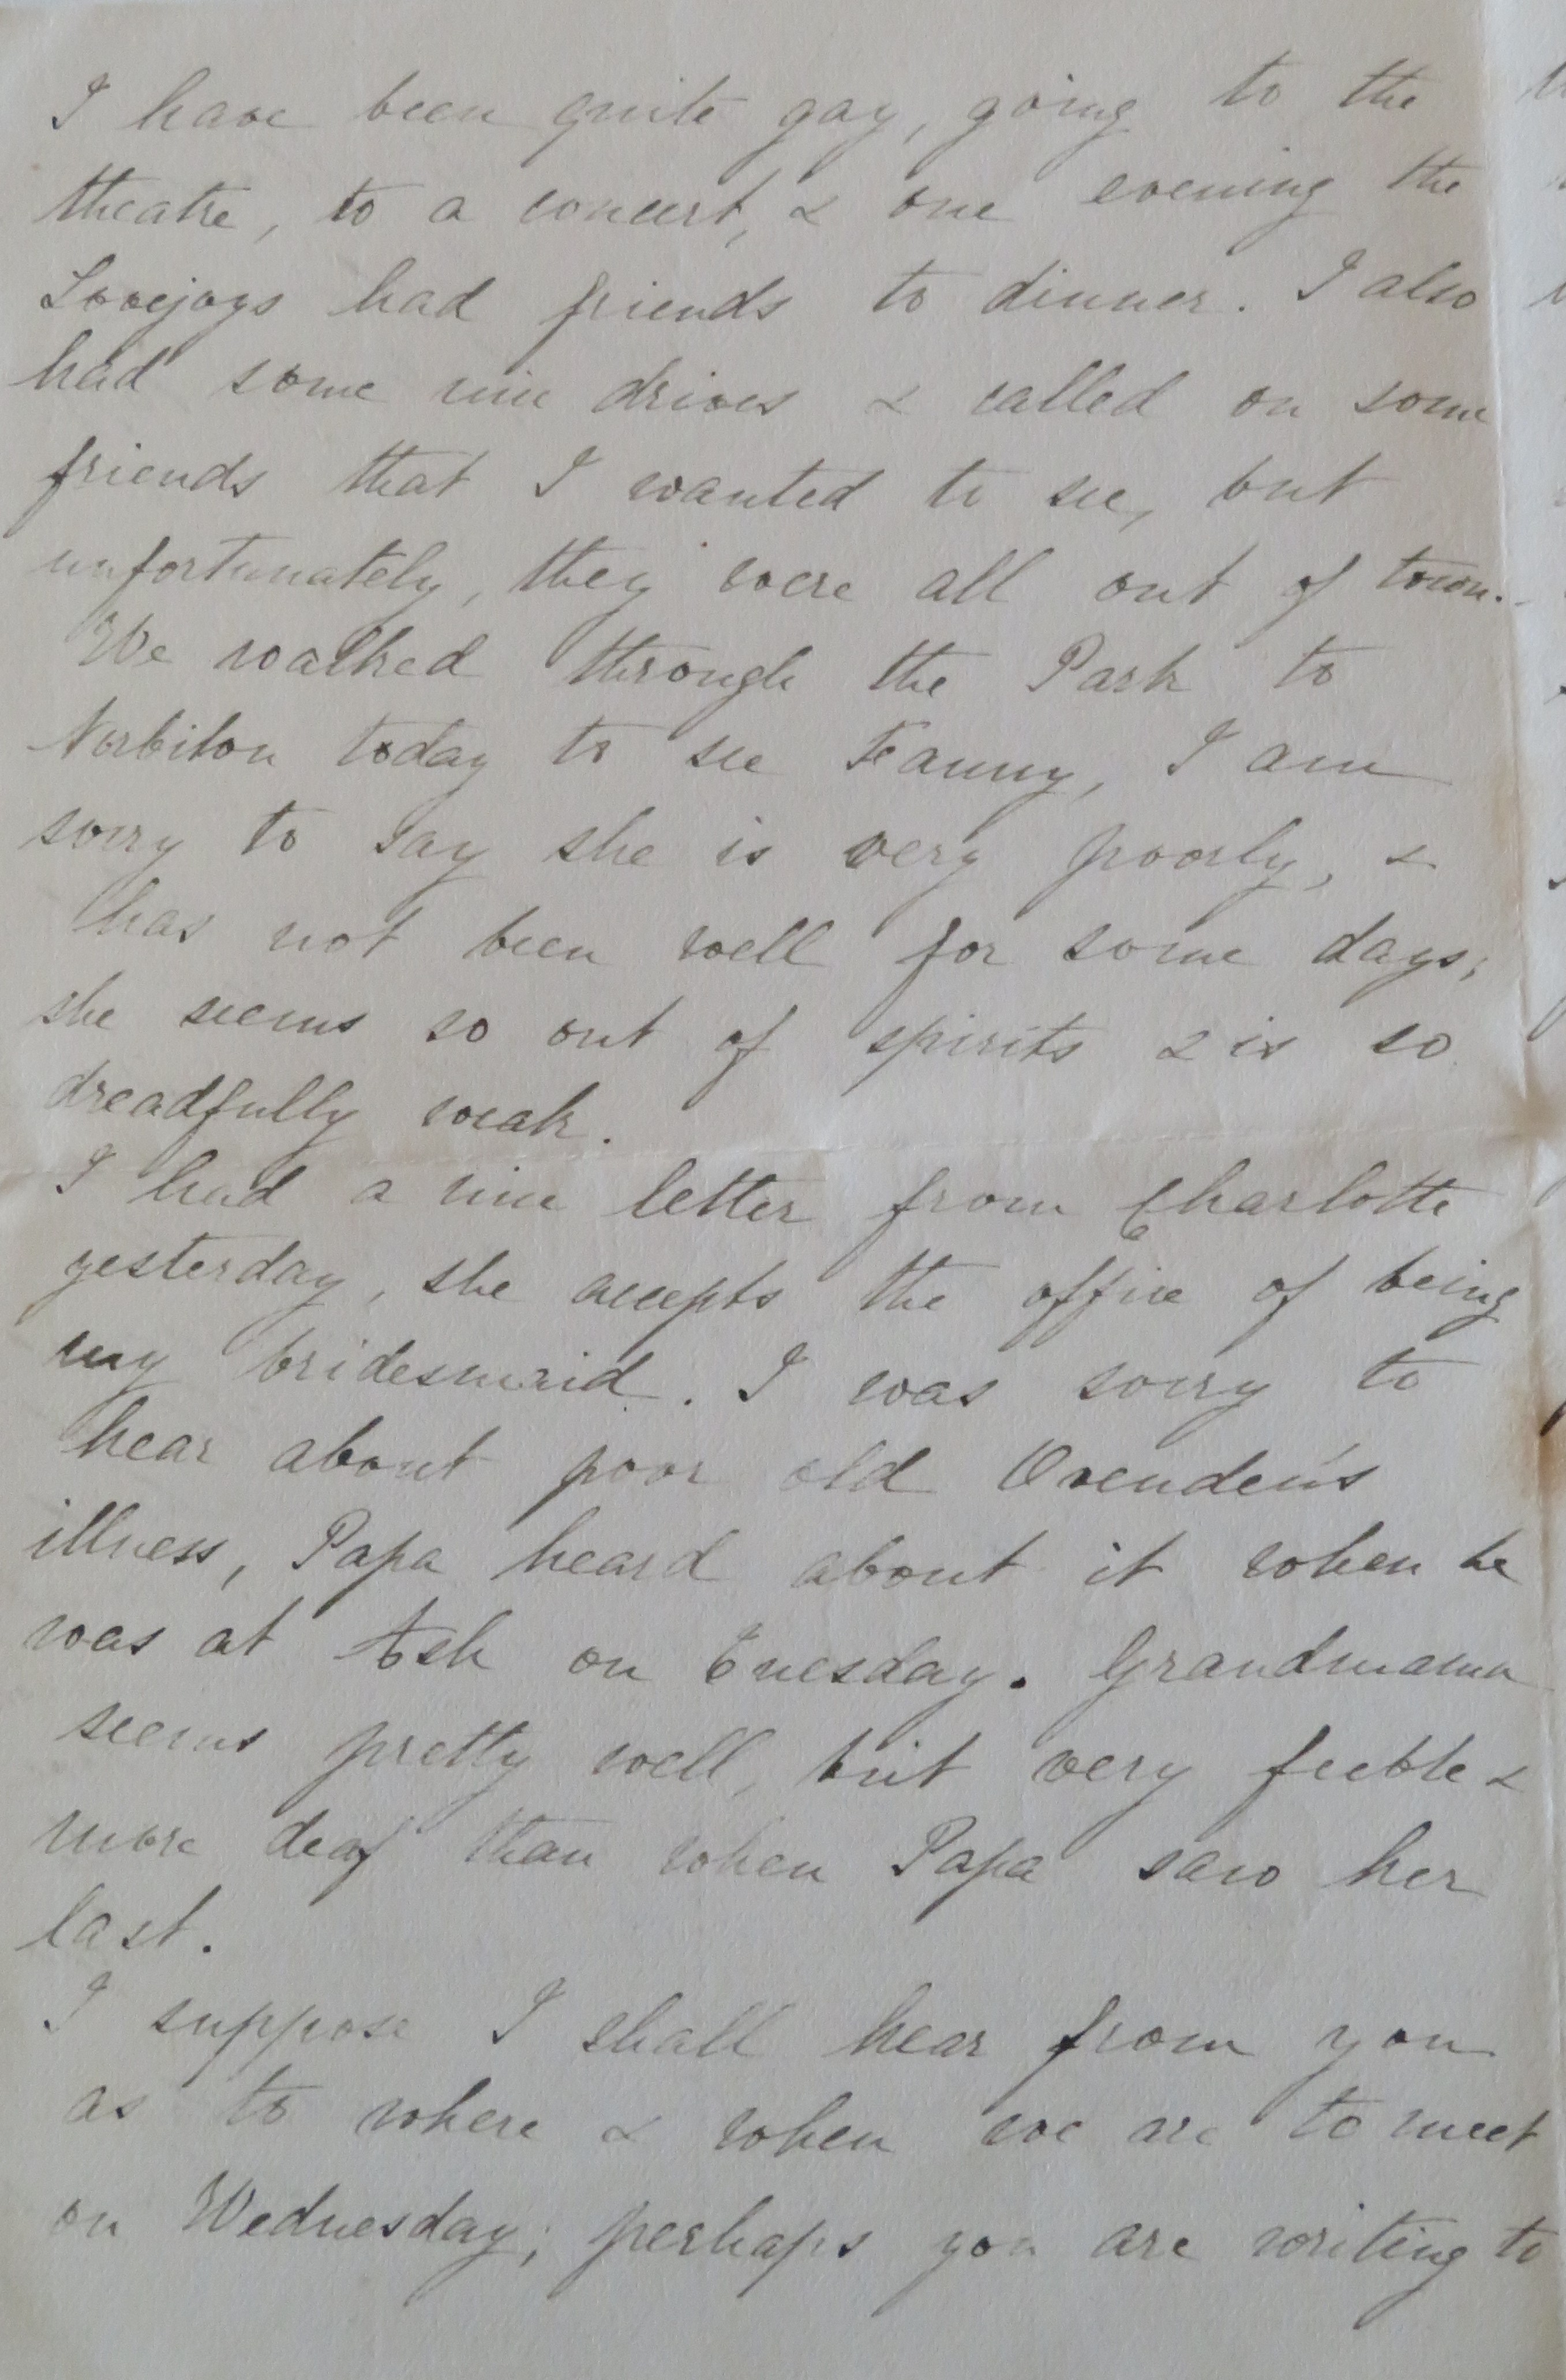 I have been quite gay, going to the
theatre, to a concert, & one evening the
Lovejoys had friends to dinner. I also
had some nice drives & called on some
friends that I wanted to see, but
unfortunately, they were all out of town.
We walked through the Park to
Norbiton today to see Fanny, I am
sorry to say she is very poorly, &
has not been well for some days;
she seems so out of spirits & is so
dreadfully weak.
I had a nice letter from Charlotte
yesterday, she accepts the office of being
my bridesmaid. I was sorry to
hear about poor old Ovenden's
illness, Papa heard about it when he
was at Ash on Tuesday. Grandmama
seems pretty well, but very feeble &
more deaf than when Papa saw her
last.
I suppose I shall hear from you
as to where & when we are to meet
on Wednesday; perhaps you are writing to